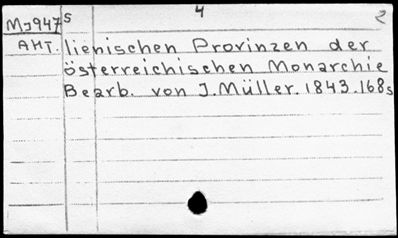 4 2
MJ947s
AHT. lienischen Provinzen der
österreichischen Monarchie
Bearb. von J. Müller. 1843. 168s